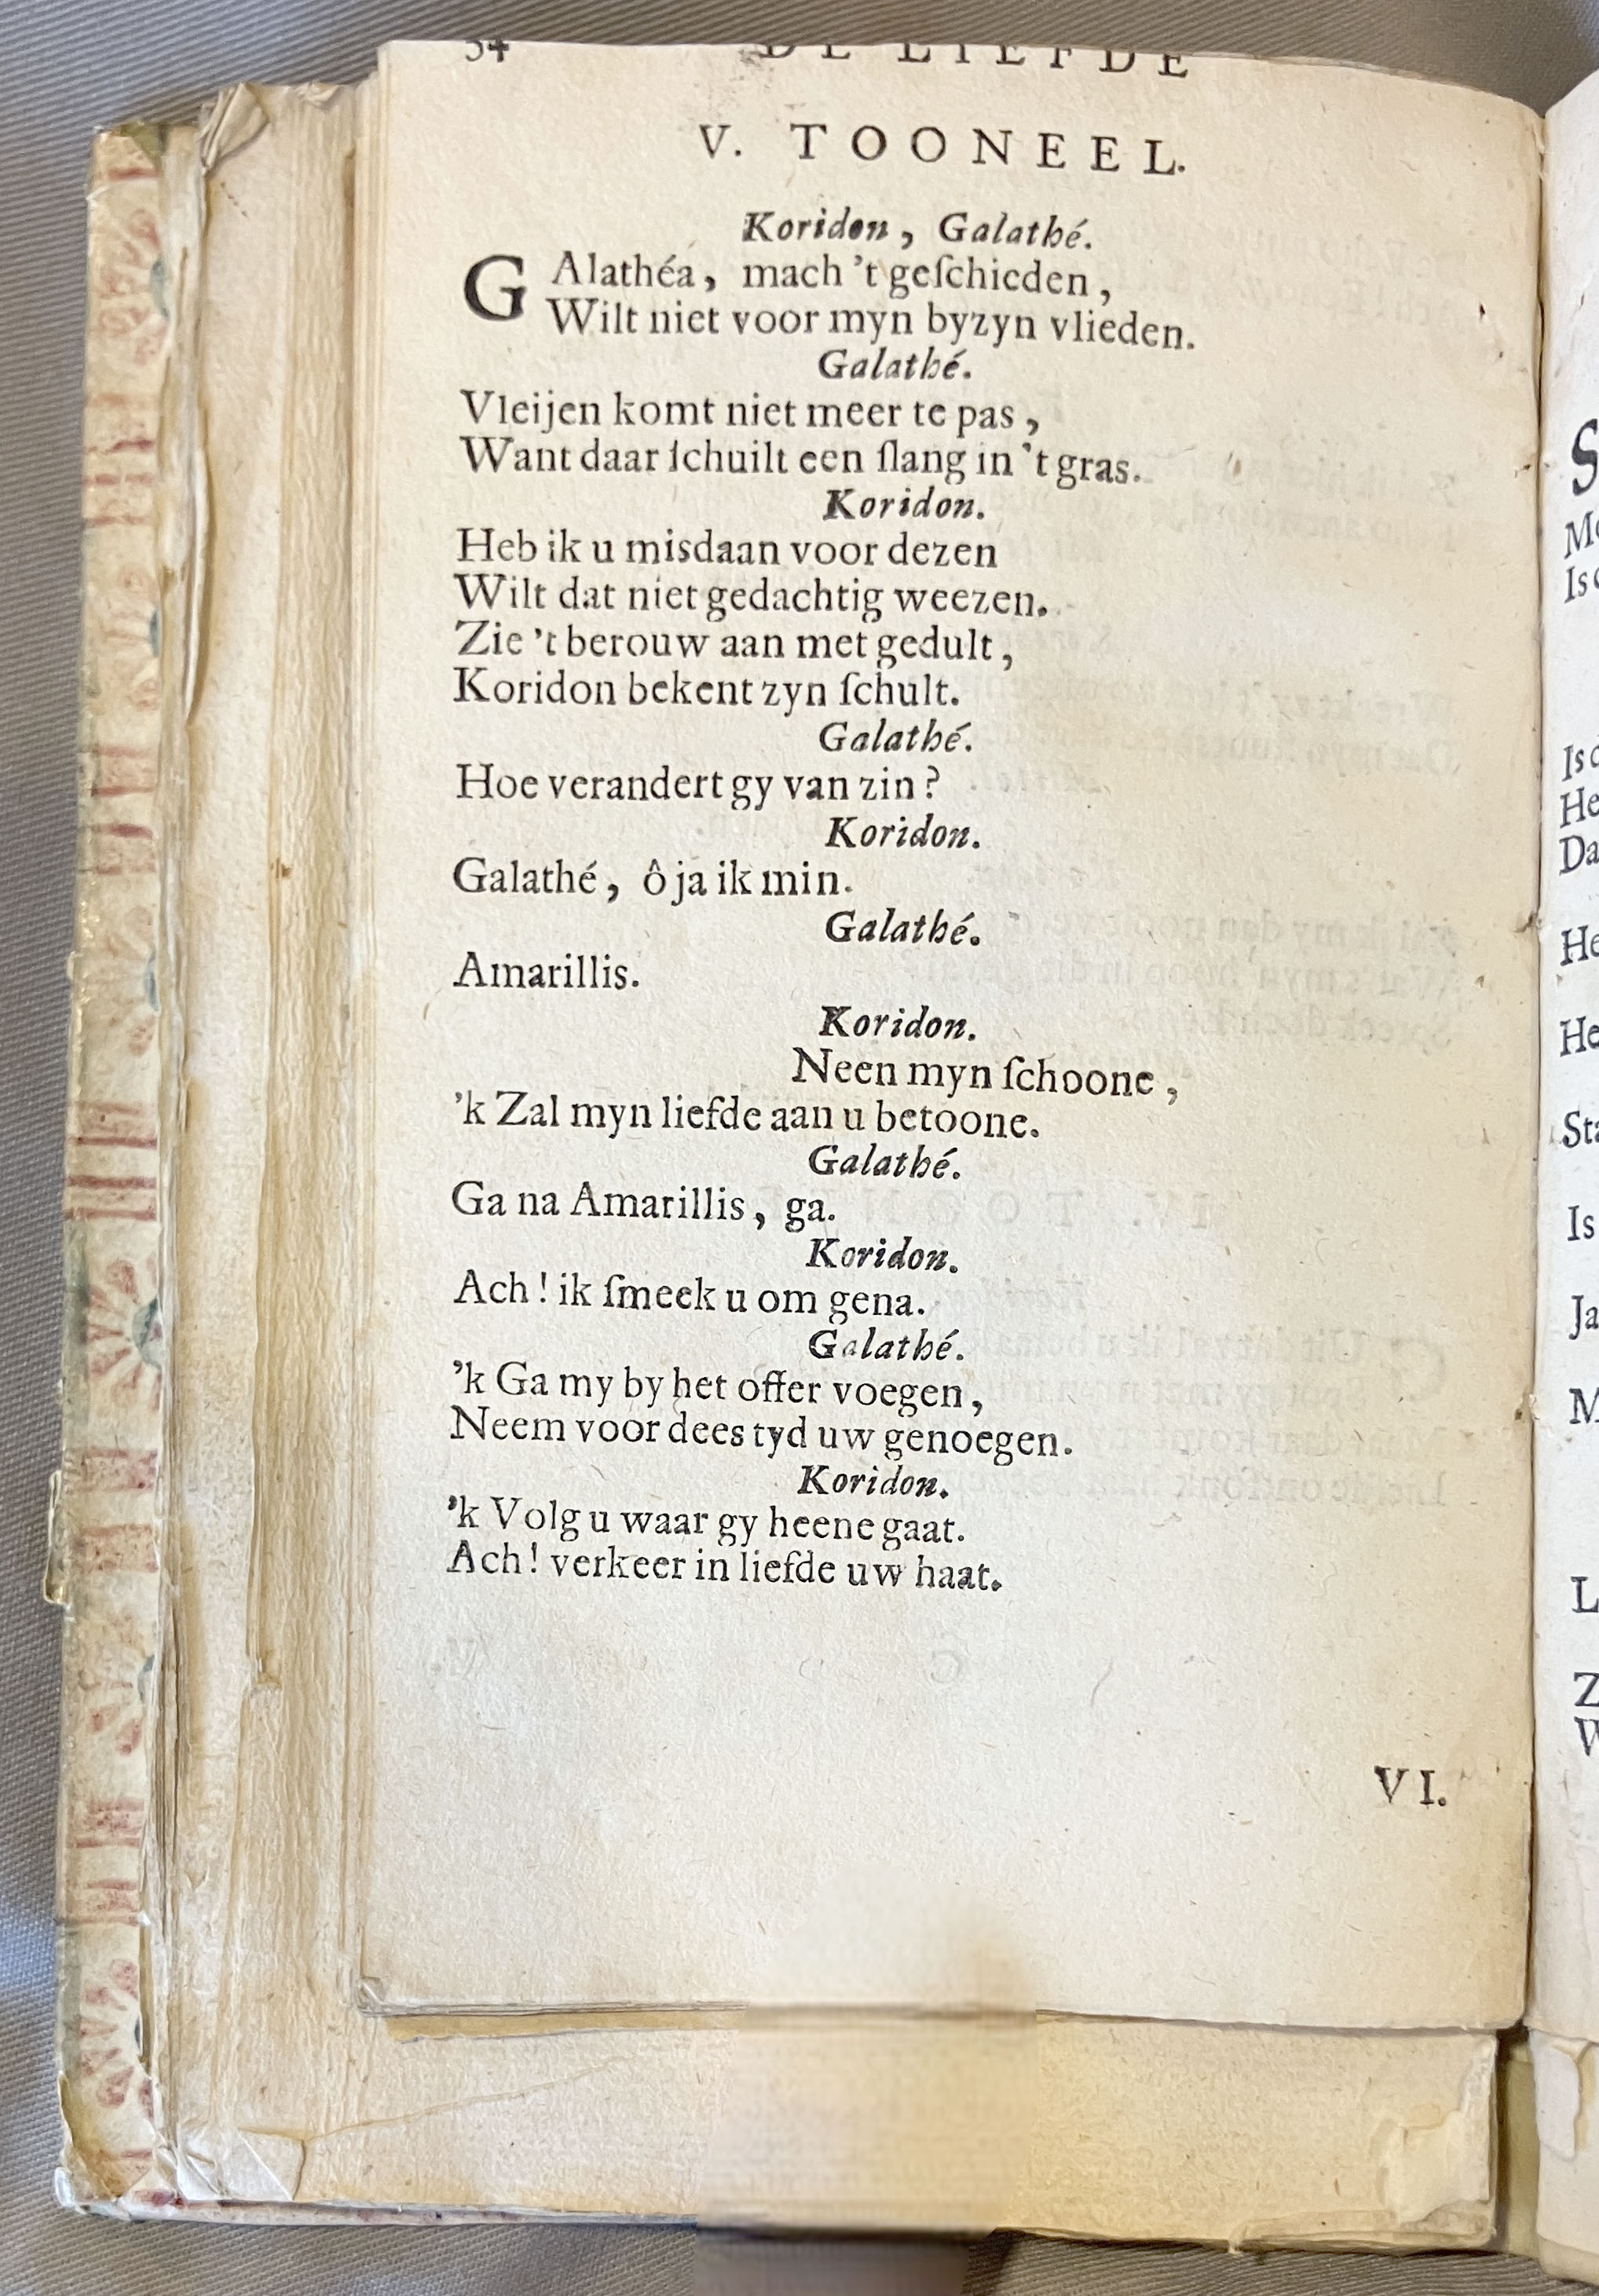 34 DE LIEFDE
V. TOONEEL.
Koridon, Galathé.
GAlathéa, mach 't geſchieden,
Wilt niet voor myn byzyn vlieden.
Galathé.
Vleijen komt niet meer te pas,
Want daar ſchuilt een ſlang in 't gras.
Koridon.
Heb ik u misdaan voor dezen
Wilt dat niet gedachtig weezen.
Zie 't berouw aan met gedult,
Koridon bekent zyn ſchult.
Galathé.
Hoe verandert gy van zin?
Koridon.
Galathé, ô ja ik min.
Galathé.
Amarillis.
Koridon.
Neen myn ſchoone,
'k Zal myn liefde aan u betoone.
Galathé.
Ga na Amarillis, ga.
Koridon.
Ach! ik ſmeek u om gena.
Galathé.
'k Ga my by het offer voegen,
Neem voor dees tyd uw genoegen.
Koridon.
'k Volg u waar gy heene gaat.
Ach! verkeer in liefde uw haat.
VI.